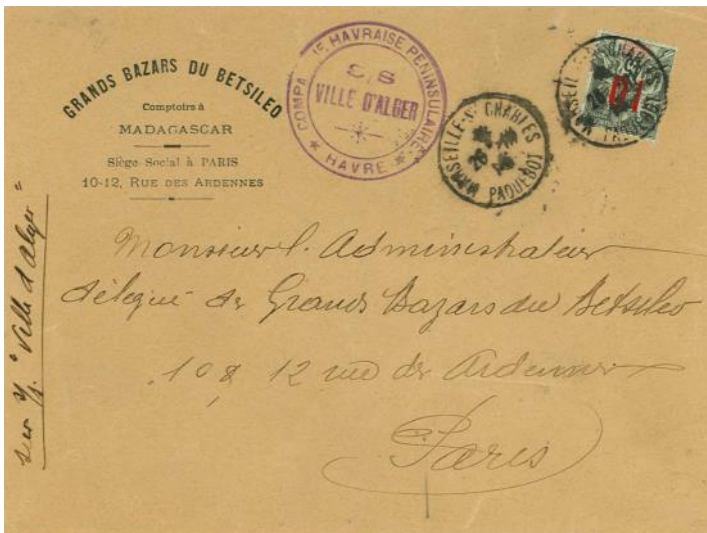 GRANDS BAZARS DU BETSILEO
Comptoirs à
MADAGASCAR
Siège Social à PARIS
10-12, RUE DES ARDENNES
COMPA IE HAVRAISE PENINSULAIRE
S/S
VILLE D'ALGER
HAVRE
MARSEILLE-St CHARLES
PAQUEBOT
01
sur S/S "Ville d'Alger"
Monsieur l'Administrateur
délégué des Grands Bazars du Betsileo
10 & 12 rue des Ardennes
Paris